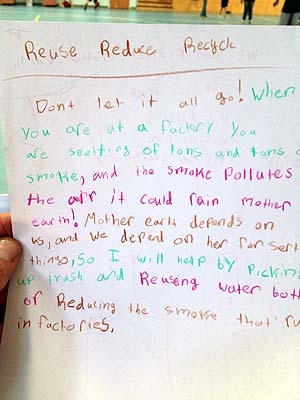 Reuse Reduce Recyck
Dont let it all go! When
You are at a factory you
are seetting of tons and tons o
smoke, and the smoke Pollutes
the air it could rain mother
earth! Mother earth depends on
us, and we depend on her for sert
things, So I will help by Pickin
up trash and Reusing water bott
or Reducing the smoke that ru
in factories.